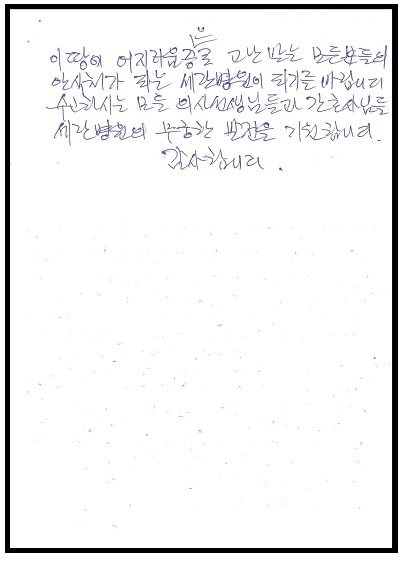 이 땅에 어지러움증로 고난 받는 모든분들의
안식처가 되는 세란병원이 되기를 바랍니다
수고하시는 모든 의사선생님들과 간호사님들
세란병원의 무궁한 발전을 기원합니다.
감사합니다.